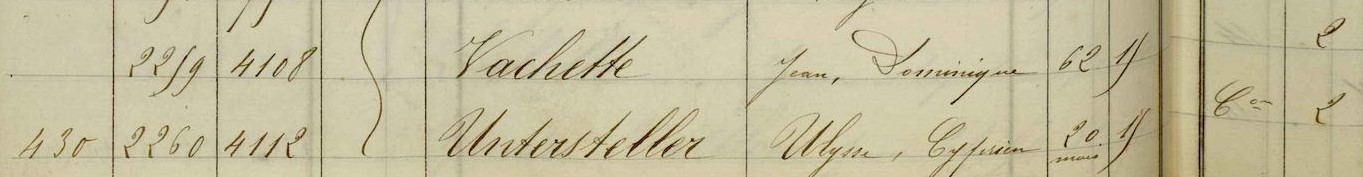 2259 4108 Vachette Jean, Dominique 62 1) 2
430 2260 4112 Untersteller Ulysse, Cyprien 20 mois 1) C<sup>on</sup> 2